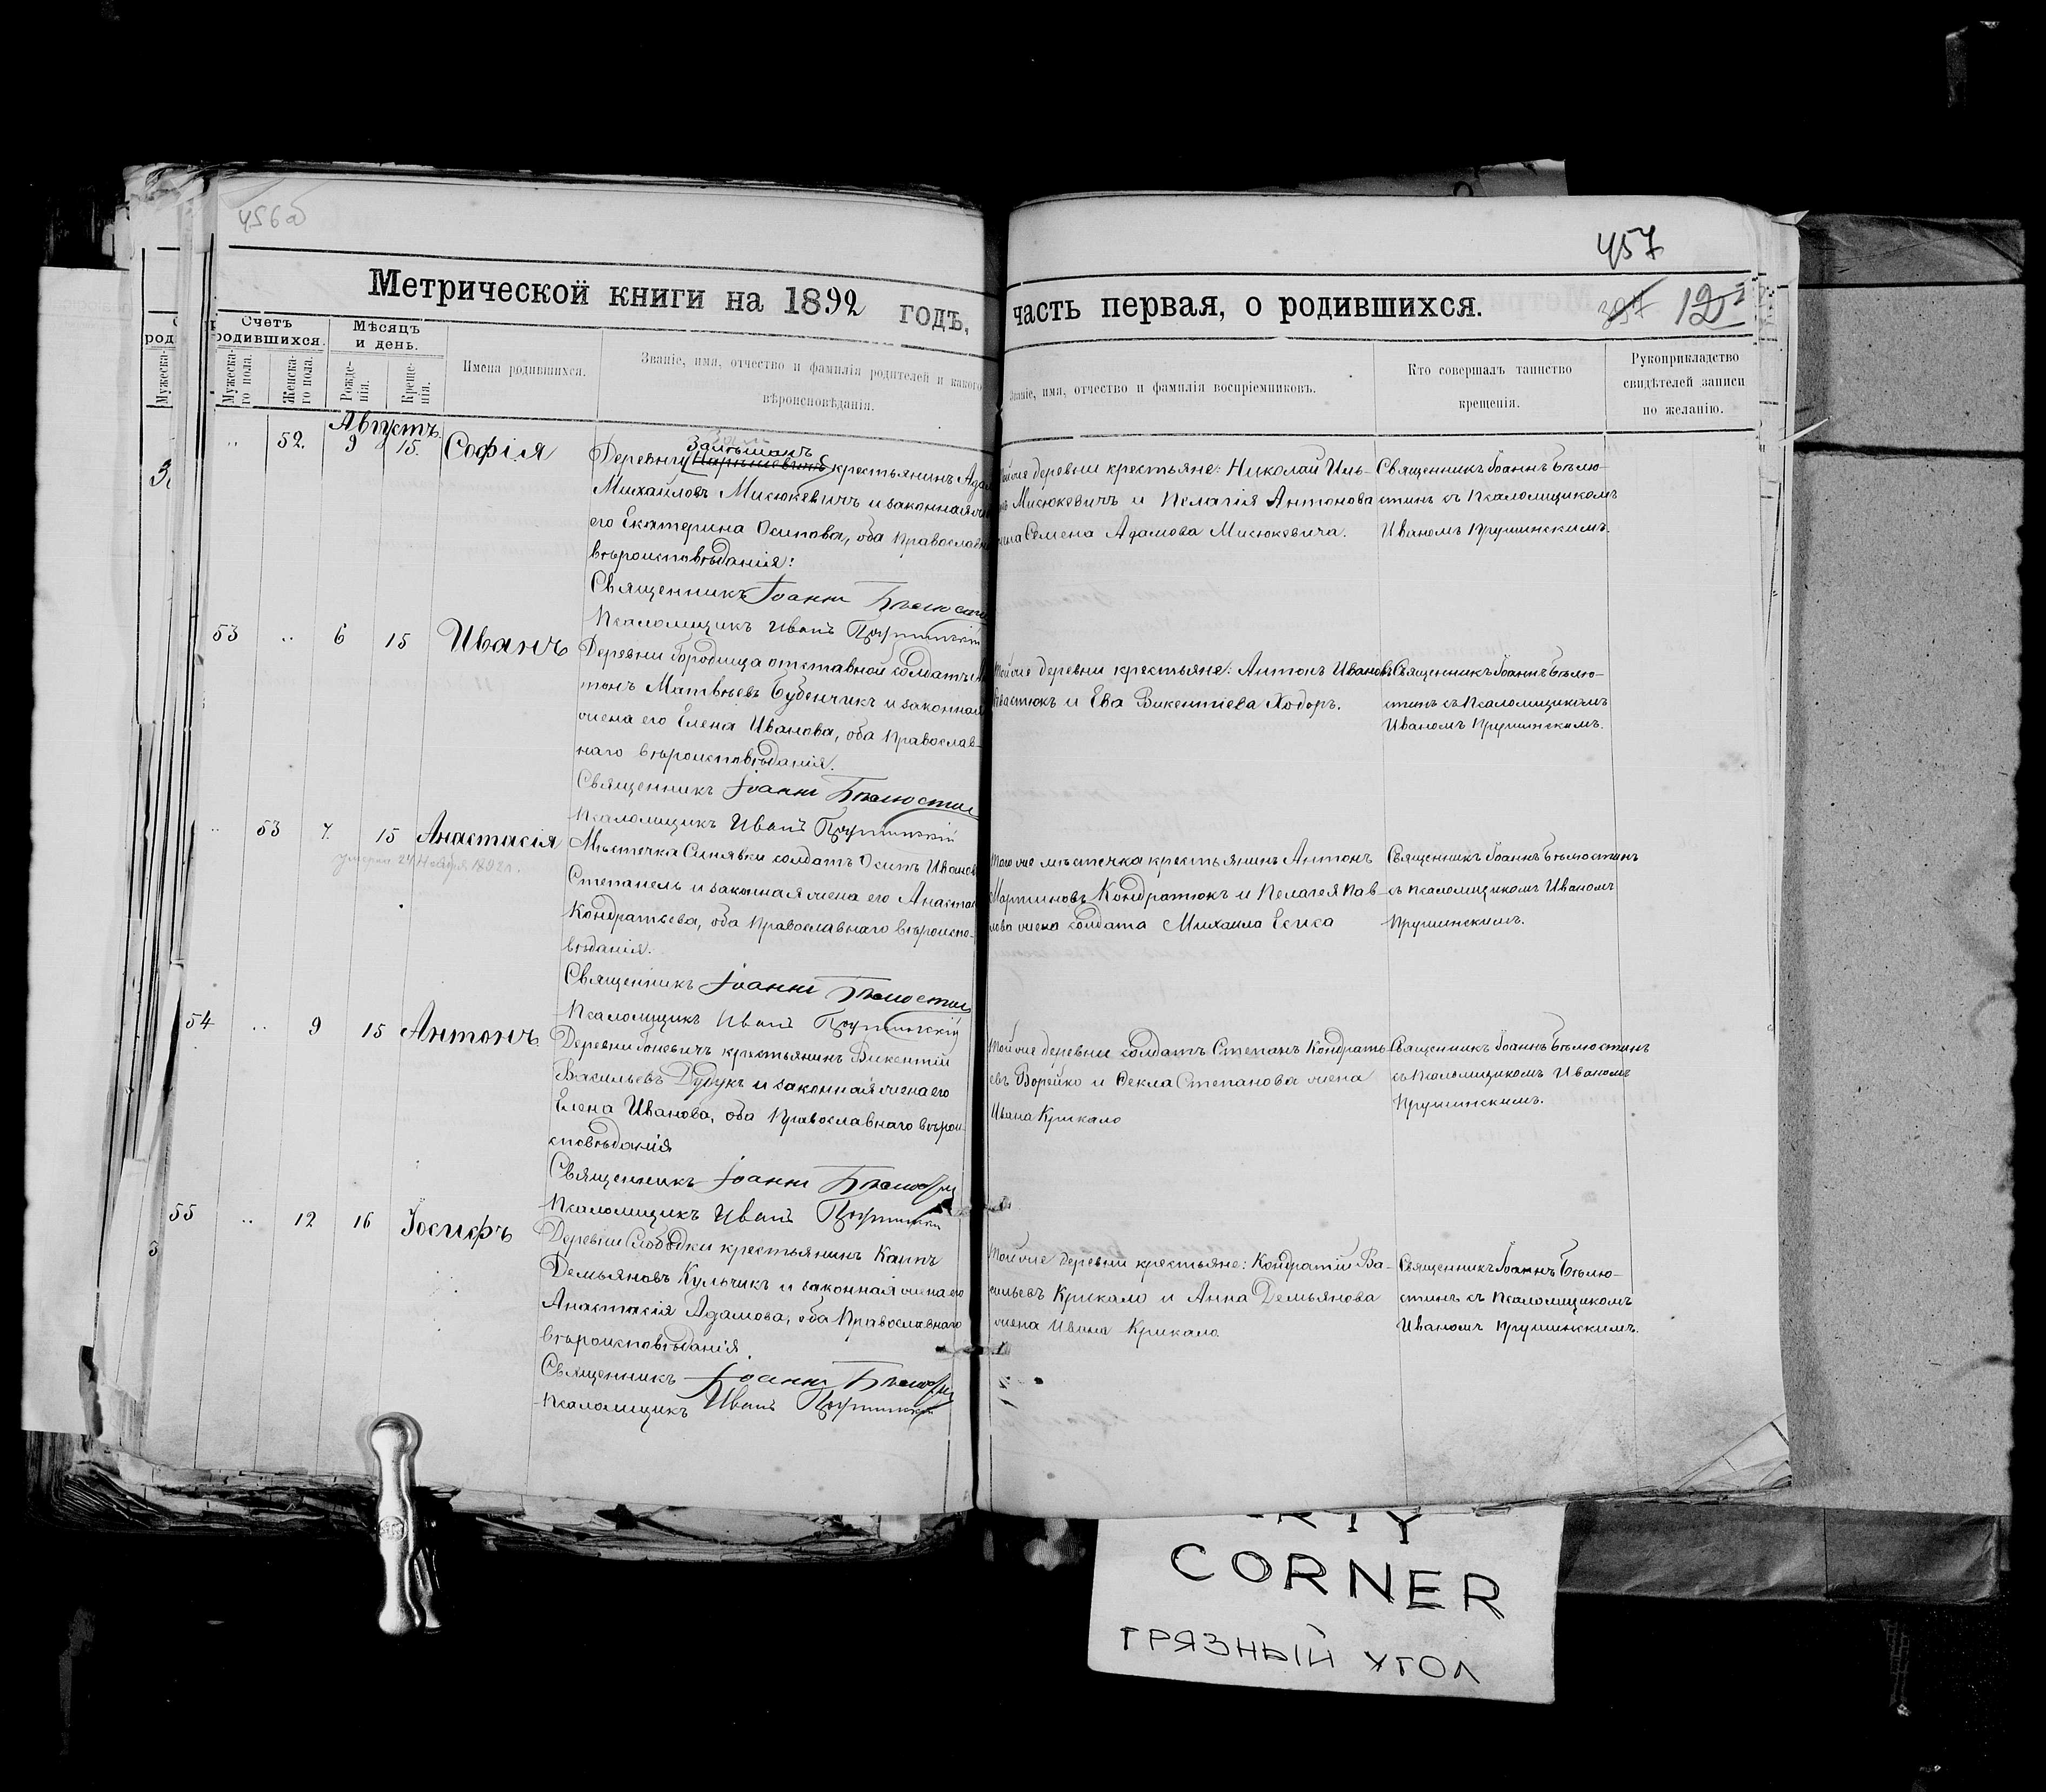 456об
457
Метрической книги на 1892 годъ,
часть первая, о родившихся.
397 12
Счетъ родившихся.
Мѣсяцъ и день.
Мужеска-го пола.
Женска-го пола.
Рожде-нія.
Креще-нія.
Имена родившихся.
Званіе, имя, отчество и фамилія родителей и какого
вѣроисповѣданія.
Званіе, имя, отчество и фамилія воспріемниковъ.
Кто совершалъ таинство
крещенія.
Рукоприкладство
свидѣтелей записи
по желанію.
Августъ.
„ 52. 9 15. Софія
Деревни крестьянинъ Адам
Михайловъ Мисюкевичъ и законная
его Екатерина Осипова, оба Православн
вѣроисповѣданія:
Священникъ Іоаннъ Бѣлюстин
Псаломщикъ Иванъ Прушинскій
Тойже деревни крестьяне: Николай Иль-
Мисюкевичъ и Пелагія Антонова
жена Семена Адамова Мисюкевича.
Священникъ Іоаннъ Бѣлю-
стинъ съ Псаломщикомъ
Иваномъ Прушинскимъ.
53 „ 6 15 Иванъ
Деревни Городища отставной солдатъ Ан
тонъ Матвѣевъ Бубенчикъ и законная
жена его Елена Иванова, оба Православ-
наго вѣроисповѣданія.
Священникъ Іоаннъ Бѣлюстин
Псаломщикъ Иванъ Прушинскій
Тойже деревни крестьяне: Антонъ Ивановъ
и Ева Викентіева Ходоръ.
Священникъ Іоаннъ Бѣлю-
стинъ съ Псаломщикомъ
Иваномъ Прушинскимъ.
„ 53 7. 15 Анастасія
умерла 24 Ноября 1892 г.
Мѣстечка Синявки солдатъ Осипъ Иванов
Степанель и законная жена его Анастас
Кондратьева, оба Православнаго вѣроиспо-
вѣданія.
Священникъ Іоаннъ Бѣлюстин
Псаломщикъ Иванъ Прушинскій
Того же мѣстечка крестьянинъ Антонъ
Мартиновъ Кондратюкъ и Пелагея Пав-
лова жена солдата Михаила Есиса
Священникъ Іоаннъ Бѣлюстинъ
съ Псаломщикомъ Иваномъ
Прушинскимъ.
54 „ 9 15 Антонъ.
Деревни Гоневичъ крестьянинъ Викентій
Васильевъ и законная жена его
Елена Иванова, оба Православнаго вѣрои-
сповѣданія
Священникъ Іоаннъ Бѣлюстин
Псаломщикъ Иванъ Прушинскій
Тойже деревни солдатъ Степанъ Кондрать-
евъ Ворейко и Текла Степанова жена
Ивана Крикало
Священникъ Іоаннъ Бѣлюстинъ
съ Псаломщикомъ Иваномъ
Прушинскимъ.
55 „ 12 16 Іосифъ
Деревни Слободки крестьянинъ Карпъ
Демьяновъ Кульчикъ и законная жена его
Анастасія Адамова, оба Православнаго
вѣроисповѣданія
Священникъ Іоаннъ Бѣлюстин
Псаломщикъ Иванъ Прушинскій
Тойже деревни крестьяне: Кондратій Ва-
сильевъ Крикало и Анна Демьянова
жена Ивана Крикало
Священникъ Іоаннъ Бѣлю-
стинъ съ Псаломщикомъ
Иваномъ Прушинскимъ.
CORNER
ГРЯЗНЫЙ УГОЛ